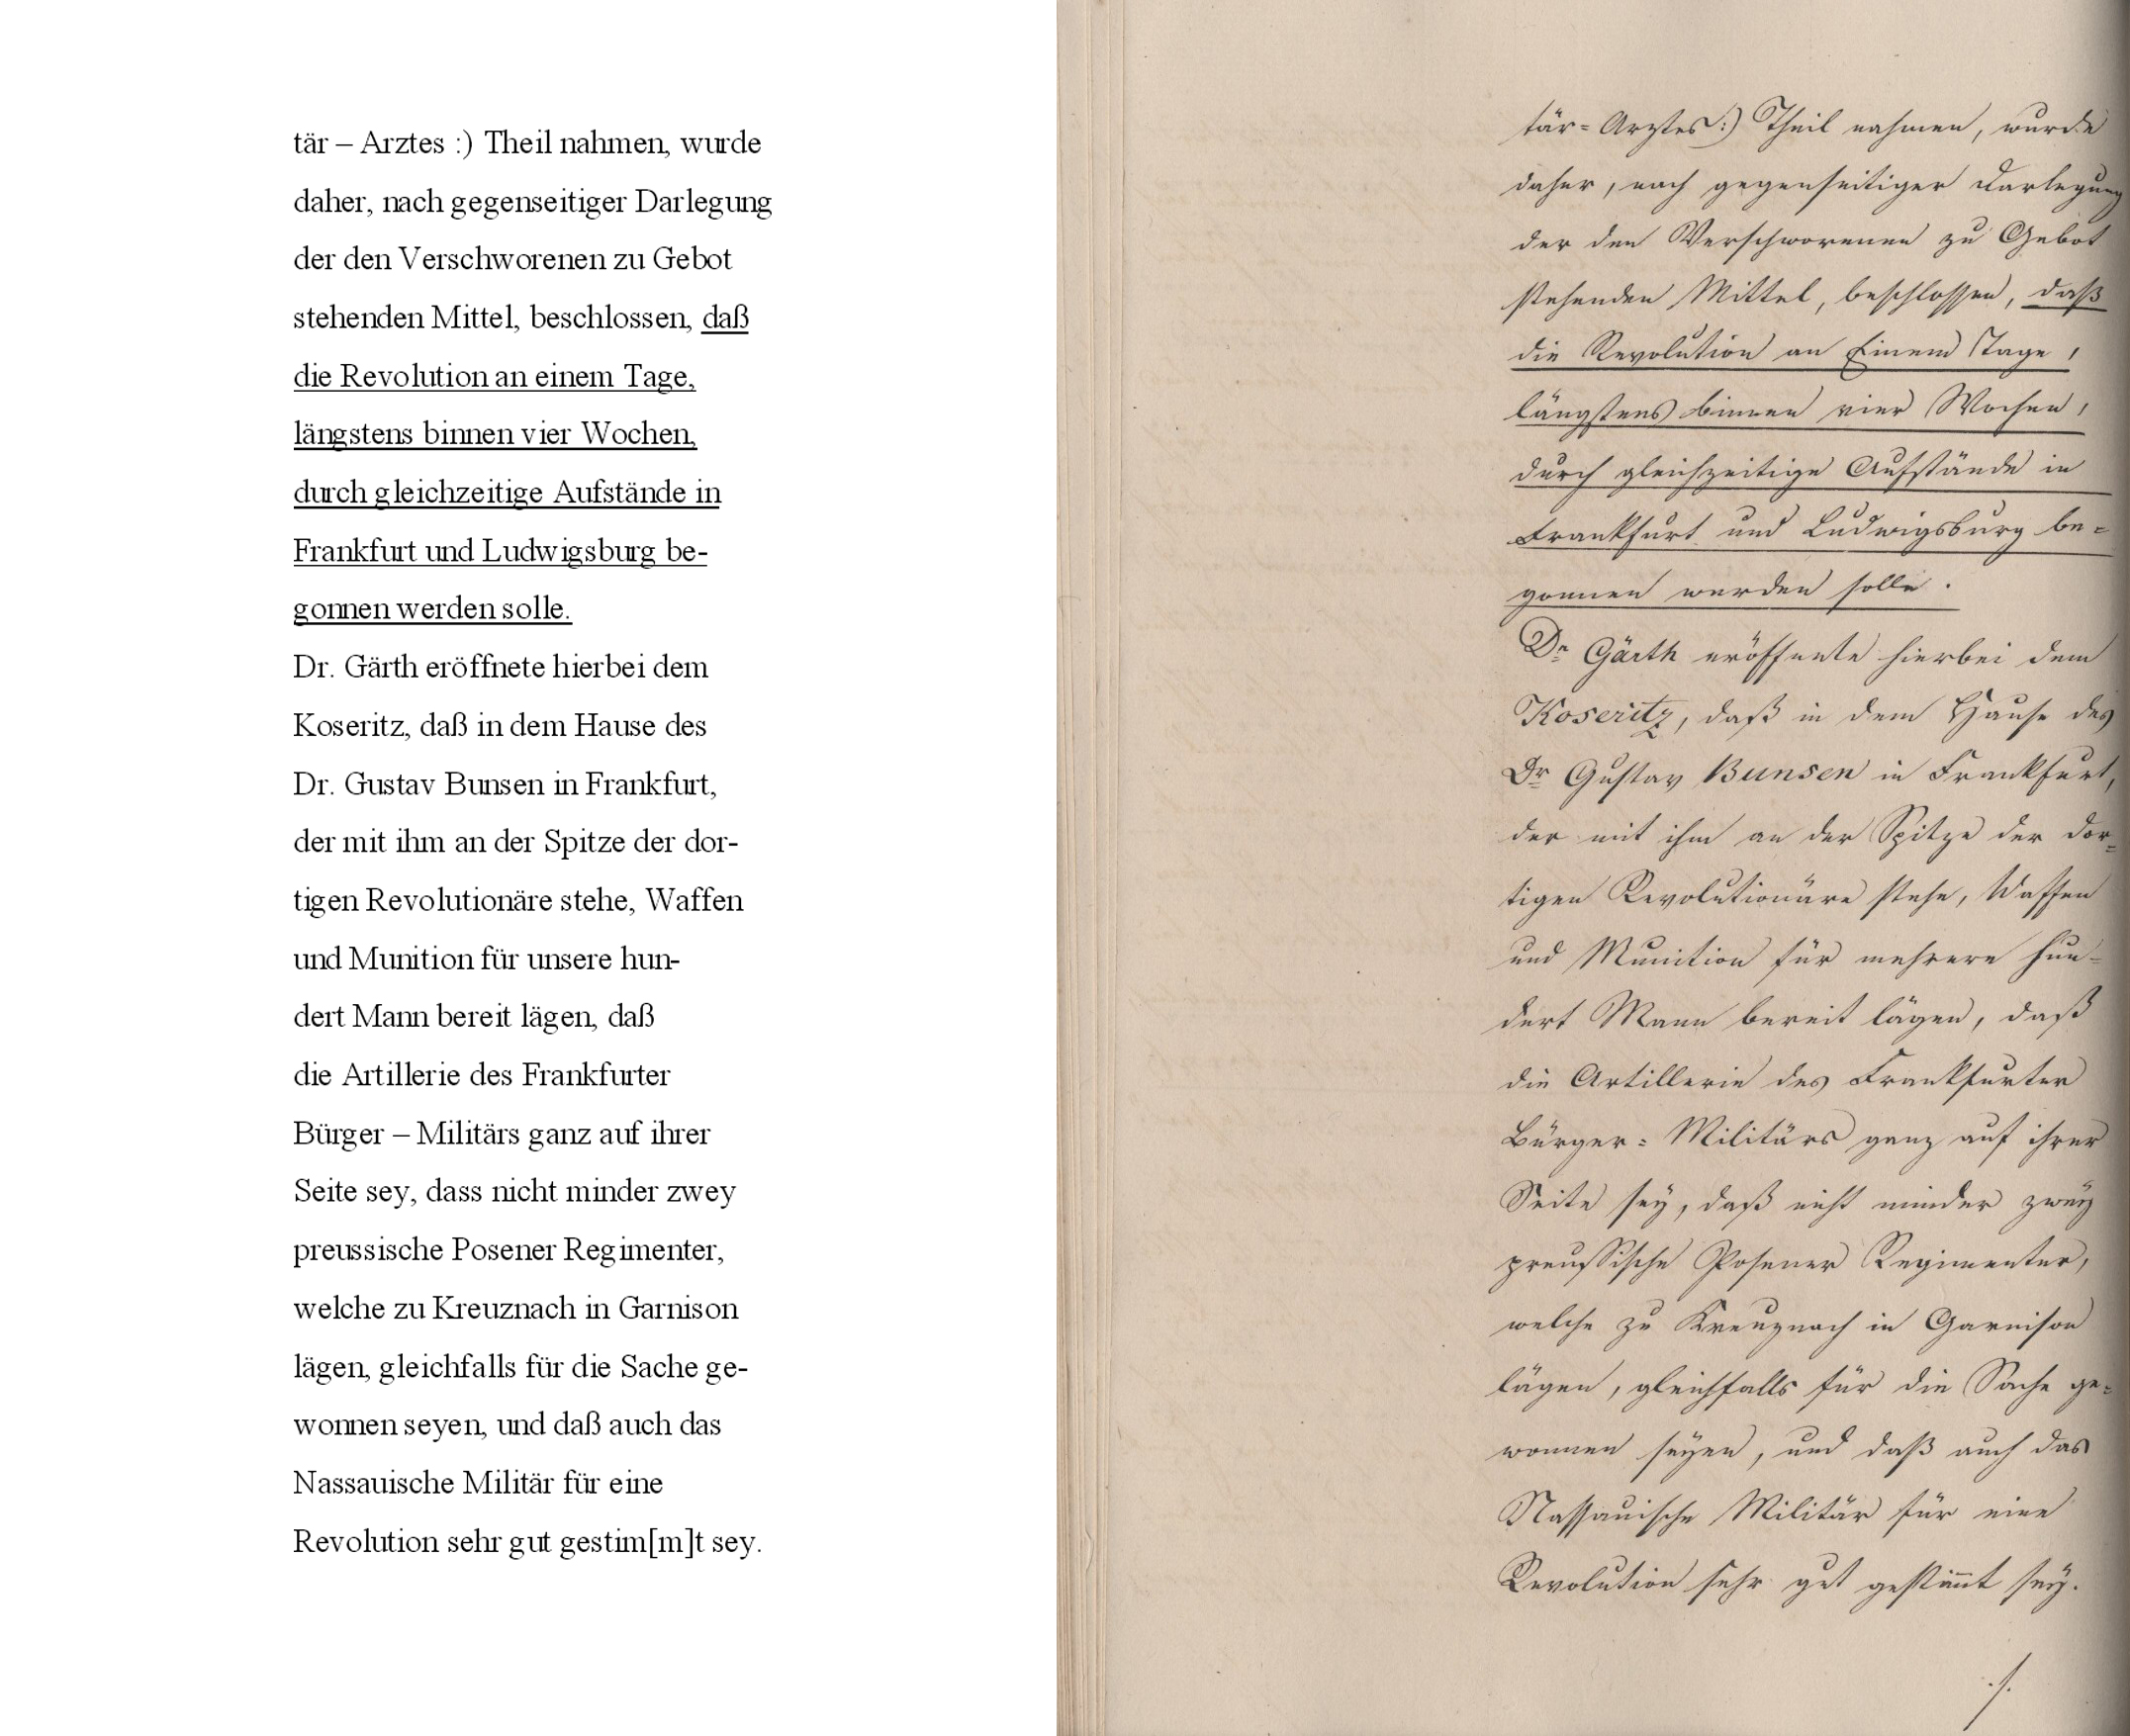 tär – Arztes :) Theil nahmen, wurde
daher, nach gegenseitiger Darlegung
der den Verschworenen zu Gebot
stehenden Mittel, beschlossen, daß
die Revolution an einem Tage,
längstens binnen vier Wochen,
durch gleichzeitige Aufstände in
Frankfurt und Ludwigsburg be-
gonnen werden solle.
Dr. Gärth eröffnete hierbei dem
Koseritz, daß in dem Hause des
Dr. Gustav Bunsen in Frankfurt,
der mit ihm an der Spitze der dor-
tigen Revolutionäre stehe, Waffen
und Munition für unsere hun-
dert Mann bereit lägen, daß
die Artillerie des Frankfurter
Bürger – Militärs ganz auf ihrer
Seite sey, dass nicht minder zwey
preussische Posener Regimenter,
welche zu Kreuznach in Garnison
lägen, gleichfalls für die Sache ge-
wonnen seyen, und daß auch das
Nassauische Militär für eine
Revolution sehr gut gestim[m]t sey.
tär=Arztes:) Theil nahmen, wurde
daher, nach gegenseitiger Darlegung
der den Verschworenen zu Gebot
stehenden Mittel, beschlossen, daß
die Revolution an Einem Tage,
längstens binnen vier Wochen,
durch gleichzeitige Aufstände in
Frankfurt und Ludwigsburg be=
gonnen werden solle.
Dr Gärth eröffnete hierbei dem
Koseritz, daß in dem Hause des
Dr Gustav Bunsen in Frankfurt,
der mit ihm an der Spitze der dor=
tigen Revolutionäre stehe, Waffen
und Munition für mehrere hun=
dert Mann bereit lägen, daß
die Artillerie des Frankfurter
Bürger=Militärs ganz auf ihrer
Seite sey, daß nicht minder zwey
preußische Posener Regimenter,
welche zu Kreuznach in Garnison
lägen, gleichfalls für die Sache ge=
wonnen seyen, und daß auch das
Nassauische Militär für eine
Revolution sehr gut gestim̅t sey.
./.